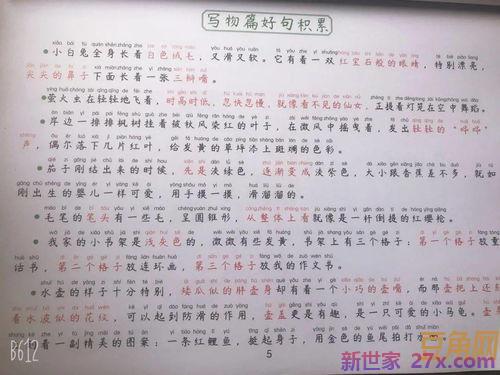 写物篇好句积累
小白兔全身长着白色绒毛，又滑又软。它有着一双红宝石般的眼睛，特别漂亮，
尖尖的鼻子下面长着一张三瓣嘴。
萤火虫在轻轻地飞着，时高时低，忽快忽慢，就像看不见的仙女，正提着灯笼在空中舞蹈。
岸边一排排枫树挂着被秋风染红的叶子，在微风中摇曳着，发出轻轻的“哗哗”
声，偶尔落下几片红叶，给发黄的草坪添上斑斓的色彩。
茄子刚结出来的时候，先是淡绿色，逐渐变成淡紫色，大小跟爸爸差不多，就如
刚出生的婴儿一样可爱，用手摸一摸，滑溜溜的。
毛笔的笔头有一些毛，呈圆锥形，从整体上看就像是一杆倒提的红缨枪。
我家的小书架是浅灰色的，微微有些发黄，书架上有三个格子：第一个格子放
话书，第二个格子放连环画，第三个格子放我的作文书。
水壶的样子十分特别，矮瓜似的胖壶身却有着一个小巧的壶嘴，而那壶把上还刻
着水波似的花纹，可以起到防滑的作用，壶盖更是有趣，是一只小乌龟。
刻着一副精美的图案：一条红鲤鱼，挺起身子，用金色的鱼尾拍打水
5
B612
豆角网
新世家 27x.com